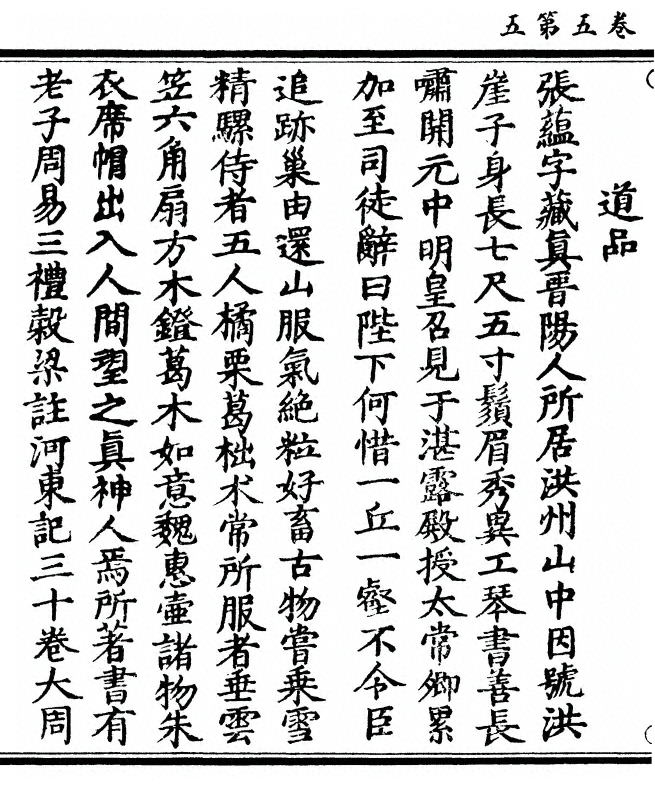 卷五第五
道品
張蘊字藏眞晋陽人所居洪州山中因號洪
崖子身長七尺五寸鬚眉秀異工琴書善長
嘯開元中明皇召見于湛露殿授太常卿累
加至司徒辭曰陛下何惜一丘一壑不令臣
追跡巢由還山服氣絶粒好畜古物嘗乗雪
精騾侍者五人橘栗葛柮术常所服者垂雲
笠六角扇方木鐙葛木如意魏惠壺諸物朱
衣席帽出入人間望之眞神人焉所著書有
老子周易三禮穀梁註河東記三十卷大周